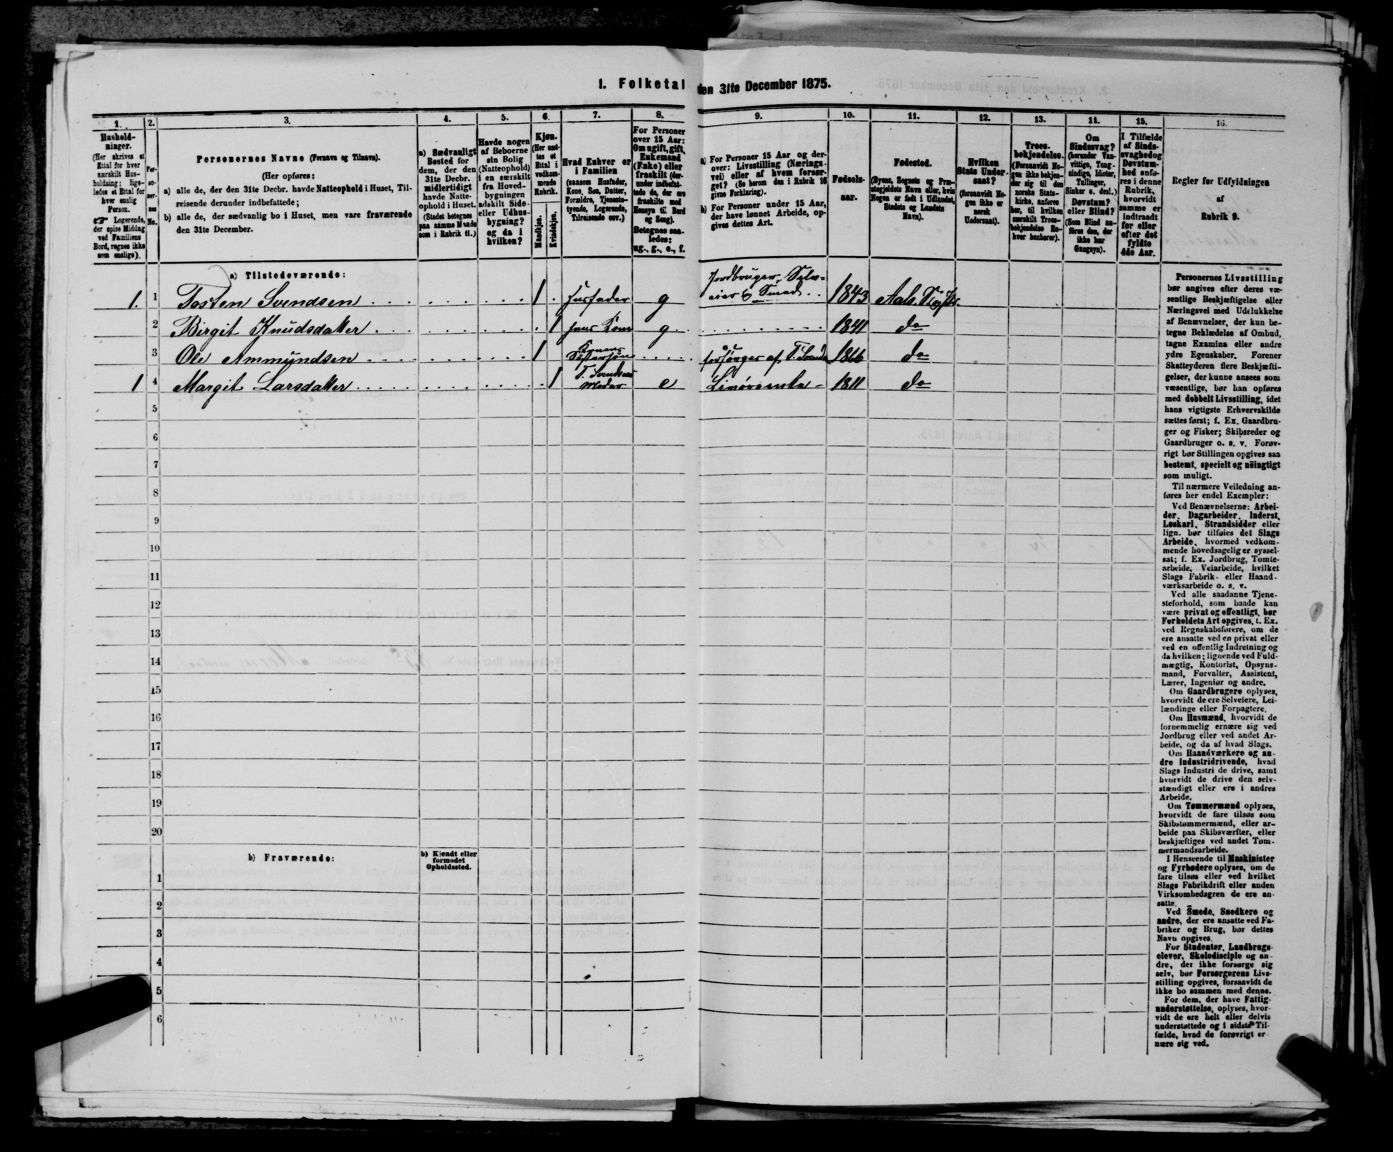 1. Folketal den 31te December 1875.
1.
Hushold-
ninger.
(Her skrives et
Ettal for hver
særskilt Hus-
holdning; lige-
ledes et Ettal for
hver enslig
Person.
Logerende,
der spise Middag
ved Familiens
Bord, regnes ikke
som enslige).
2.
Per-
so-
ner-
nes
No.
3.
Personernes Navne (Fornavn og Tilnavn).
(Her opføres:
a) alle de, der den 31te Decbr. havde Natteophold i Huset, Til-
reisende derunder indbefattede;
b) alle de, der sædvanlig bo i Huset, men vare fraværende
den 31te December.
4.
a) Sædvanligt
Bosted for
dem, der den
31te Decbr.
midlertidigt
havde Natte-
ophold i Huset.
(Stedet betegnes
paa samme Maade
som i Rubrik 11.)
5.
Havde nogen
af Beboerne
sin Bolig
(Natteophold)
i en særskilt
fra Hoved-
bygningen
adskilt Side-
eller Udhus-
bygning?
og da i
hvilken?
6.
Kjøn.
(Her sæt-
tes et
Ettal i
vedkom-
mende
Rubrik.
Mandkjøn.
Kvindekjøn.
7.
Hvad Enhver er
i Familien
(saasom Husfader,
Kone, Søn, Datter,
Forældre, Tjeneste-
tyende, Logerende,
Tilreisende osv.)
8.
For Personer
over 15 Aar:
Om ugift, gift,
Enkemand
(Enke) eller
fraskilt (der-
under indbefat-
tede de, der ere
fraskilte med
Hensyn til Bord
og Seng)
Betegnes saa-
ledes:
ug., g., e., f.
9.
a) For Personer 15 Aar og der-
over: Livsstilling (Nærings-
vei) eller af hvem forsør-
get? (Se herom den i Rubrik 16
givne Forklaring).
b) For Personer under 15 Aar,
der have lønnet Arbeide, op-
gives dettes Art.
10.
Fødsels-
aar.
11.
Fødested.
(Byens, Sognets og Præ-
stegjeldets Navn eller, hvis
Nogen er født i Udlandet,
Stedets og Landets
Navn).
12.
Hvilken
Stats Under-
saat?
(Forsaavidt No-
gen ikke er
norsk
Undersaat).
13.
Troes-
bekjendelse.
(Forsaavidt No-
gen ikke bekjen-
der sig til den
norske Stats-
kirke, anføres
her, til hvilken
særskilt Troes-
bekjendelse En-
hver henhører).
14.
Om
Sindssvag?
(herunder Van-
vittige, Tung-
sindige, Idioter,
Tullinger,
Sinker o. desl.)
Døvstum?
eller Blind?
(Som Blind an-
føres den, der
ikke har
Gangsyn).
15.
I Tilfælde
af Sinds-
svaghed og
Døvstum-
hed anfø-
res i denne
Rubrik,
hvorvidt
samme er
indtraadt
før eller
efter det
fyldte
4de Aar.
16.
Regler for Udfyldningen
af
Rubrik 9.
a) Tilstedeværende:
1. 1 Tosten Svendsen 1 Husfader g Jordbruger, Selv-
eier & Smed 1843 Aals
2 Birgit Knudsdatter 1 hans Kone g 1841 do
3 Ole Ammundsen 1 Konens
Søstersøn forsørges af T. Svends 1866 do
1 4 Margit Larsdatter 1 T. Svendsens
Moder e 1811 do
5
6
7
8
9
10
11
12
13
14
15
16
17
18
19
20
b) Fraværende:
b) Kjendt eller
formodet
Opholdssted.
1
2
3
4
5
6
Personernes Livsstilling
bør angives efter deres væ-
sentlige Beskjæftigelse eller
Næringsvei med Udelukkelse
af Benævnelser, der kun be-
tegne Beklædelse af Ombud,
tagne Examina eller andre
ydre Egenskaber. Forener
Skatteyderen flere Beskjæfti-
gelser, der kunne ansees som
væsentlige, bør han opføres
med dobbelt Livsstilling, idet
hans vigtigste Erhvervskilde
sættes først; f. Ex. Gaardbru-
ger og Fisker; Skibsreder og
Gaardbruger o. s. v. Forøv-
rigt bør Stillingen opgives saa
bestemt, specielt og nöiagtigt
som muligt.
Til nærmere Veiledning an-
føres her endel Exempler:
Ved Benævnelserne: Arbei-
der, Dagarbeider, Inderst,
Løskarl, Strandsidder eller
lign. bør tilføies det Slags
Arbeide, hvormed vedkom-
mende hovedsagelig er syssel-
sat; f. Ex. Jordbrug, Tomte-
arbeide, Veiarbeide, hvilket
Slags Fabrik- eller Haand-
værksarbeide o. s. v.
Ved alle saadanne Tjene-
steforhold, som baade kan
være privat og offentligt, bør
Forholdets Art opgives, t. Ex.
ved Regnskabsførere, om de
ere ansatte ved en privat eller
ved en offentlig Indretning og
da hvilken; lignende ved Fuld-
mægtig, Kontorist, Opsyns-
mand, Forvalter, Assistent,
Lærer, Ingeniør og andre.
Om Gaardbrugere oplyses,
hvorvidt de ere Selveiere, Lei-
lændinge eller Forpagtere.
Om Husmænd, hvorvidt de
fornemmelig ernære sig ved
Jordbrug eller ved andet Ar-
beide, og da af hvad Slags.
Om Haandværkere og an-
dre Industridrivende, hvad
Slags Industri de drive, samt
hvorvidt de drive den selv-
stændigt eller ere i andres
Arbeide.
Om Tømmermænd oplyses,
hvorvidt de fare tilsøs som
Skibstømmermænd, eller ar-
beide paa Skibsværfter, eller
beskjæftiges ved andet Tøm-
mermandsarbeide.
I Henseende til Maskinister
og Fyrbødere oplyses, om de
fare tilsøs eller ved hvilket
Slags Fabrikdrift eller anden
Virksomhedsgren de ere an-
satte.
Ved Smede, Snedkere og
andre, der ere ansatte ved Fa-
briker og Brug, bør dettes
Navn opgives.
For Studenter, Landbrugs-
elever, Skoledisciple og an-
dre, der ikke forsørge sig
selv, bør Forsørgerens Livs-
stilling opgives, forsaavidt de
ikke bo sammen med denne.
For dem, der have Fattig-
understøttelse, oplyses, hvor-
vidt de ere helt eller delvis
understøttede og i sidste Til-
fælde, hvad de forøvrigt er-
nære sig ved.